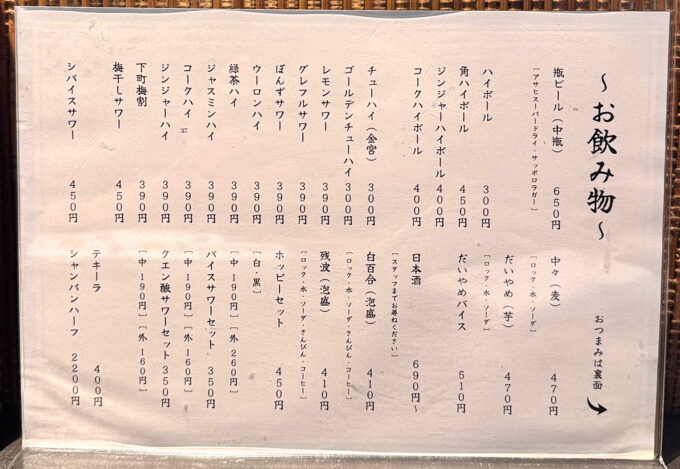 ～お飲み物～
おつまみは裏面
瓶ビール（中瓶） 650円
［アサヒスーパードライ・サッポロラガー］
ハイボール 300円
角ハイボール 450円
ジンジャーハイボール 400円
コークハイボール 400円
チューハイ（金宮） 300円
ゴールデンチューハイ 300円
レモンサワー 390円
グレフルサワー 390円
ぽんずサワー 390円
ウーロンハイ 390円
緑茶ハイ 390円
ジャスミンハイ 390円
コークハイ 390円
ジンジャーハイ 390円
下町梅割 390円
梅干しサワー 450円
シバイスサワー 450円
中々（麦） 470円
［ロック・水・ソーダ］
だいやめ（芋） 470円
［ロック・水・ソーダ］
だいやめバイス 510円
日本酒 690円～
［スタッフまでお尋ねください］
白百合（泡盛） 410円
［ロック・水・ソーダ・さんぴん・コーヒー］
残波（泡盛） 410円
［ロック・水・ソーダ・さんぴん・コーヒー］
ホッピーセット 450円
［白・黒］
［中 190円］［外 260円］
バイスサワーセット 350円
［中 190円］［外 160円］
クエン酸サワーセット 350円
［中 190円］［外 160円］
テキーラ 400円
シャンパンハーフ 2200円